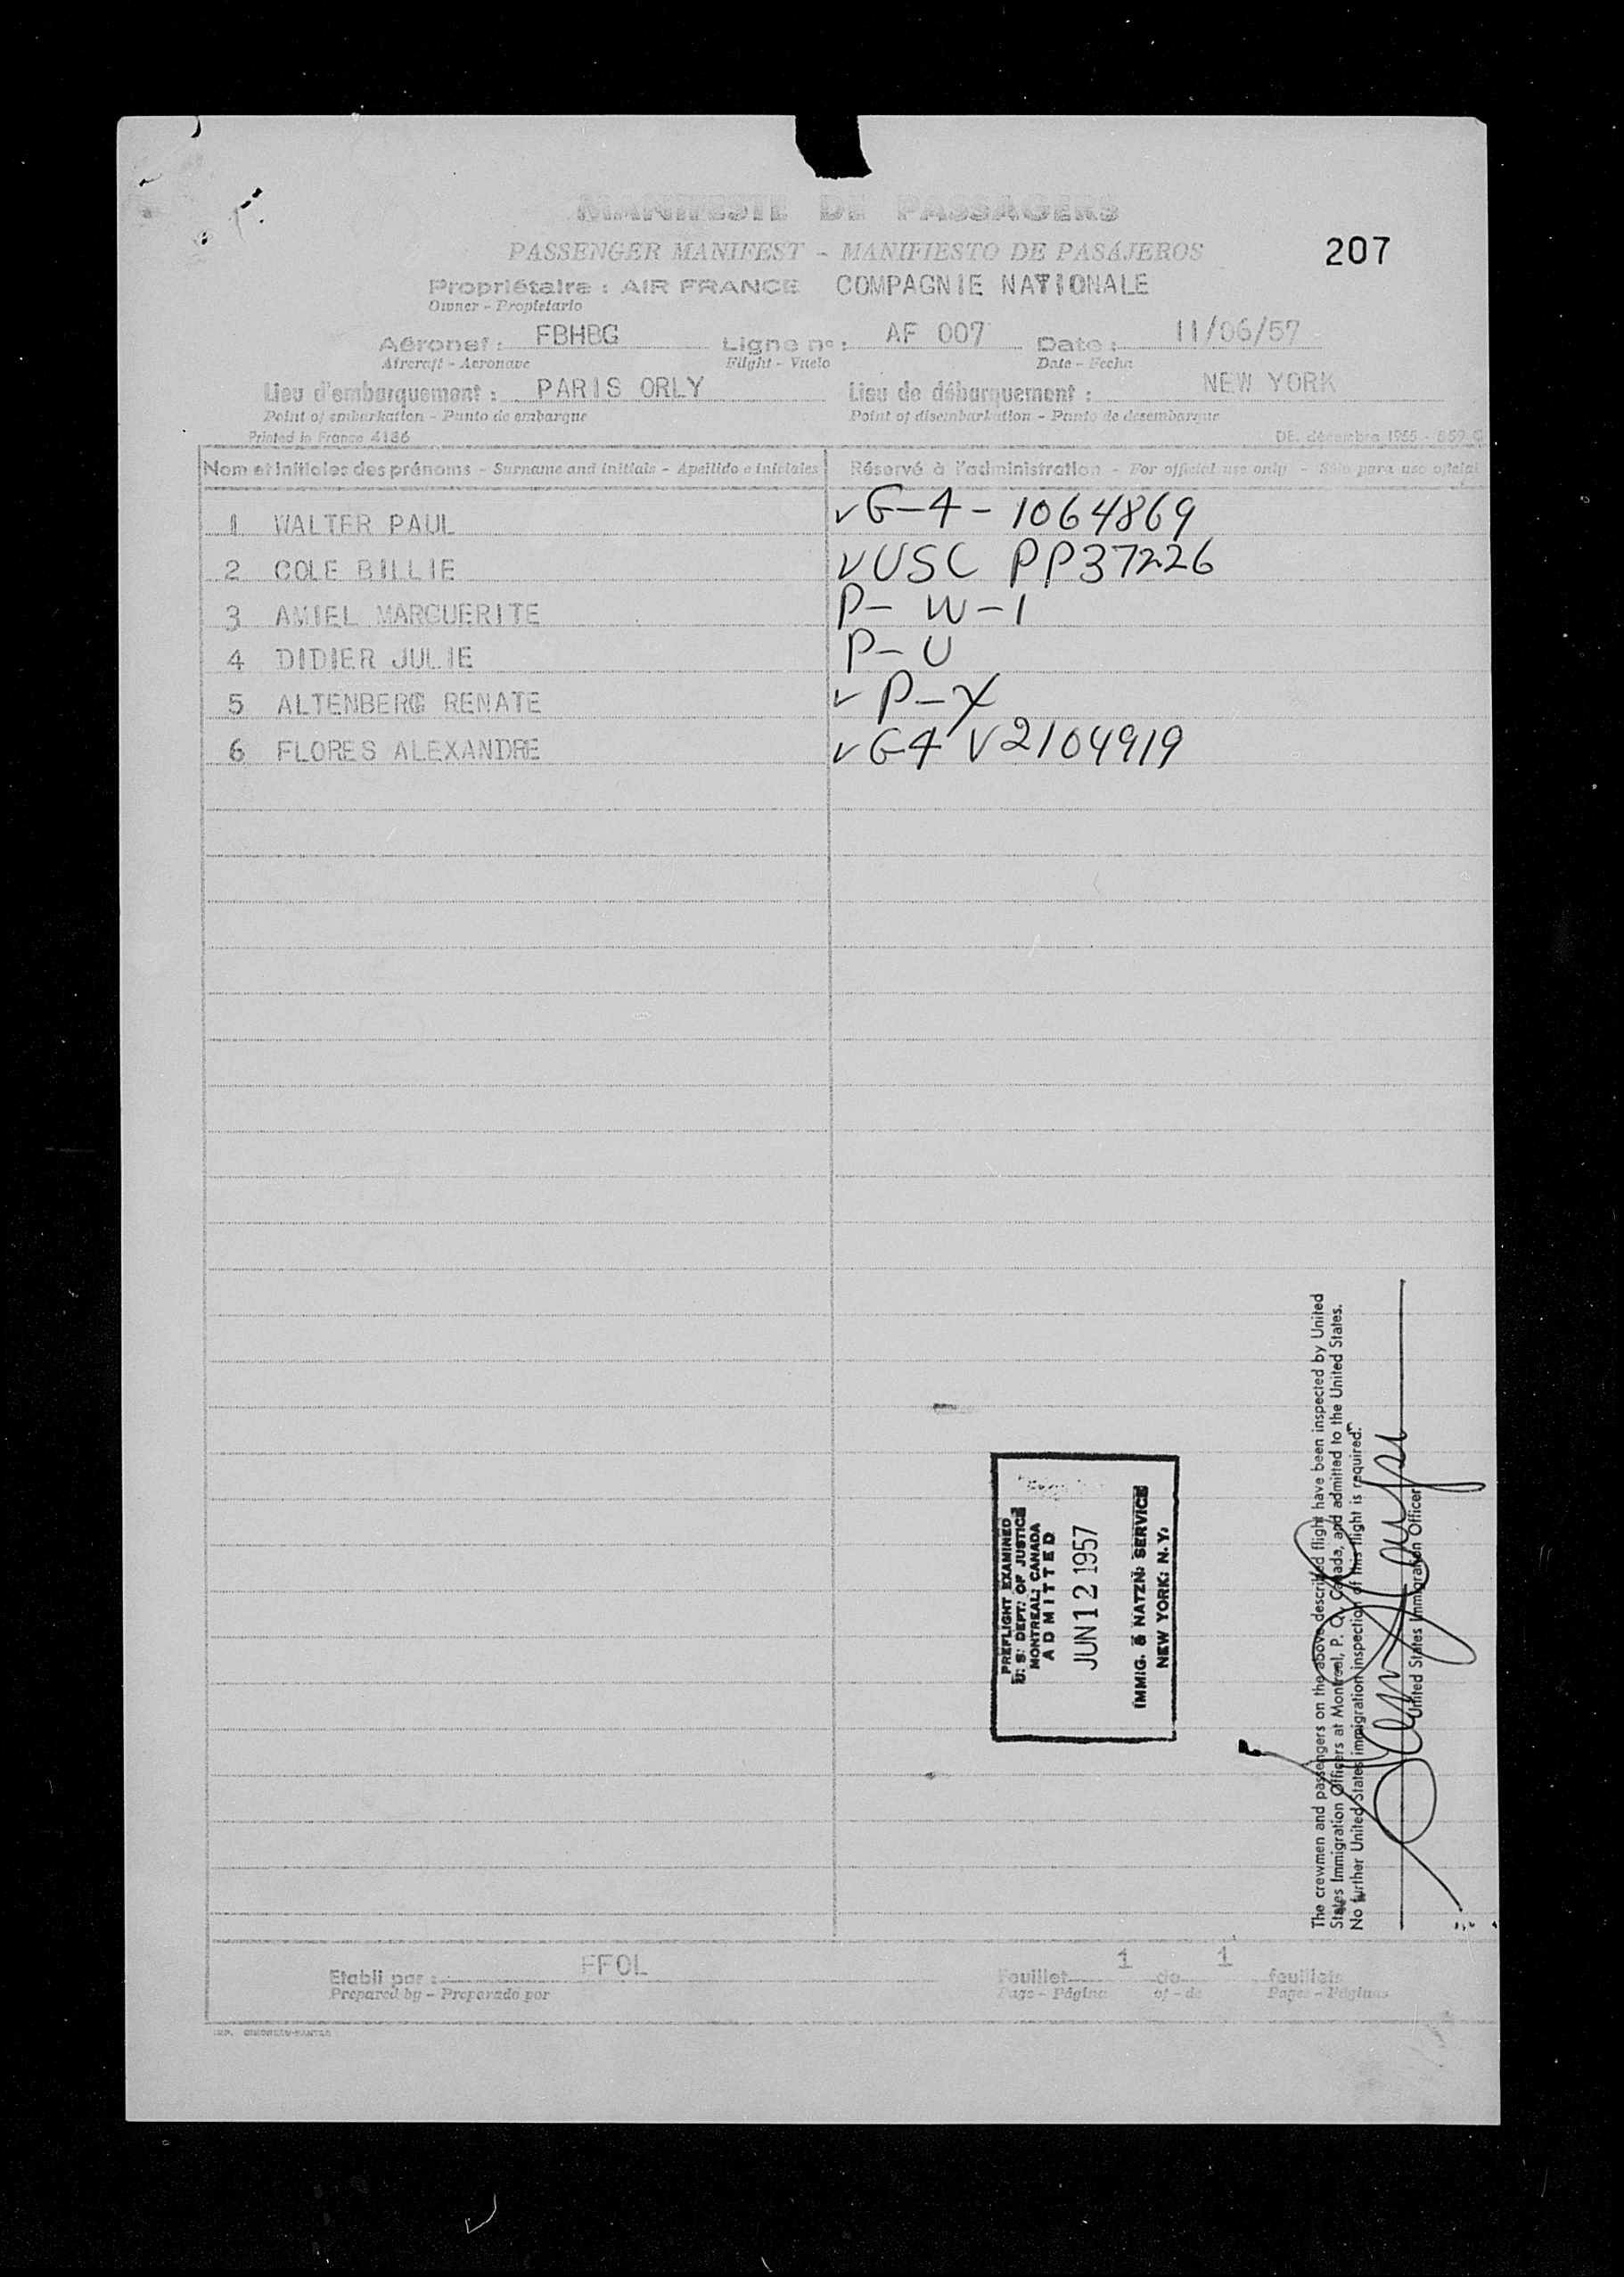 MANIFESTE DE PASSAGERS
PASSENGER MANIFEST - MANIFIESTO DE PASAJEROS
207
Propriétaire : AIR FRANCE COMPAGNIE NATIONALE
Owner - Propietario
Aéronef : FBHBG Ligne n° : AF 007 Date : 11/06/57
Aircraft - Aeronave Flight - Vuelo Date - Fecha
Lieu d'embarquement : PARIS ORLY Lieu de débarquement : NEW YORK
Point of embarkation - Punto de embarque Point of disembarkation - Punto de desembarque
Printed in France 4186 DE. décembre 1955 -
Nom et initiales des prénoms - Surname and initials - Apellido e iniciales Réservé à l'administration - For official use only - Sólo para uso oficial
1 WALTER PAUL ✓ G-4 - 1064869
2 COLE BILLIE ✓ USC PP37226
3 AMIEL MARGUERITE P- W-1
4 DIDIER JULIE P-U
5 ALTENBERG RENATE ✓ P-X
6 FLORES ALEXANDRE ✓ G4 V2104919
PREFLIGHT EXAMINED
U. S. DEPT. OF JUSTICE
MONTREAL, CANADA
ADMITTED
JUN 12 1957
IMMIG. & NATZN. SERVICE
NEW YORK, N.Y.
The crewmen and passengers on the above described flight have been inspected by United
States Immigration Officers at Montreal, P. Q., Canada, and admitted to the United States.
No further United States immigration inspection of this flight is required.
United States Immigration Officer
Etabli par : FFOL Feuillet 1 de 1 feuillets
Prepared by - Preparado por Page - Página of - de Pages - Páginas